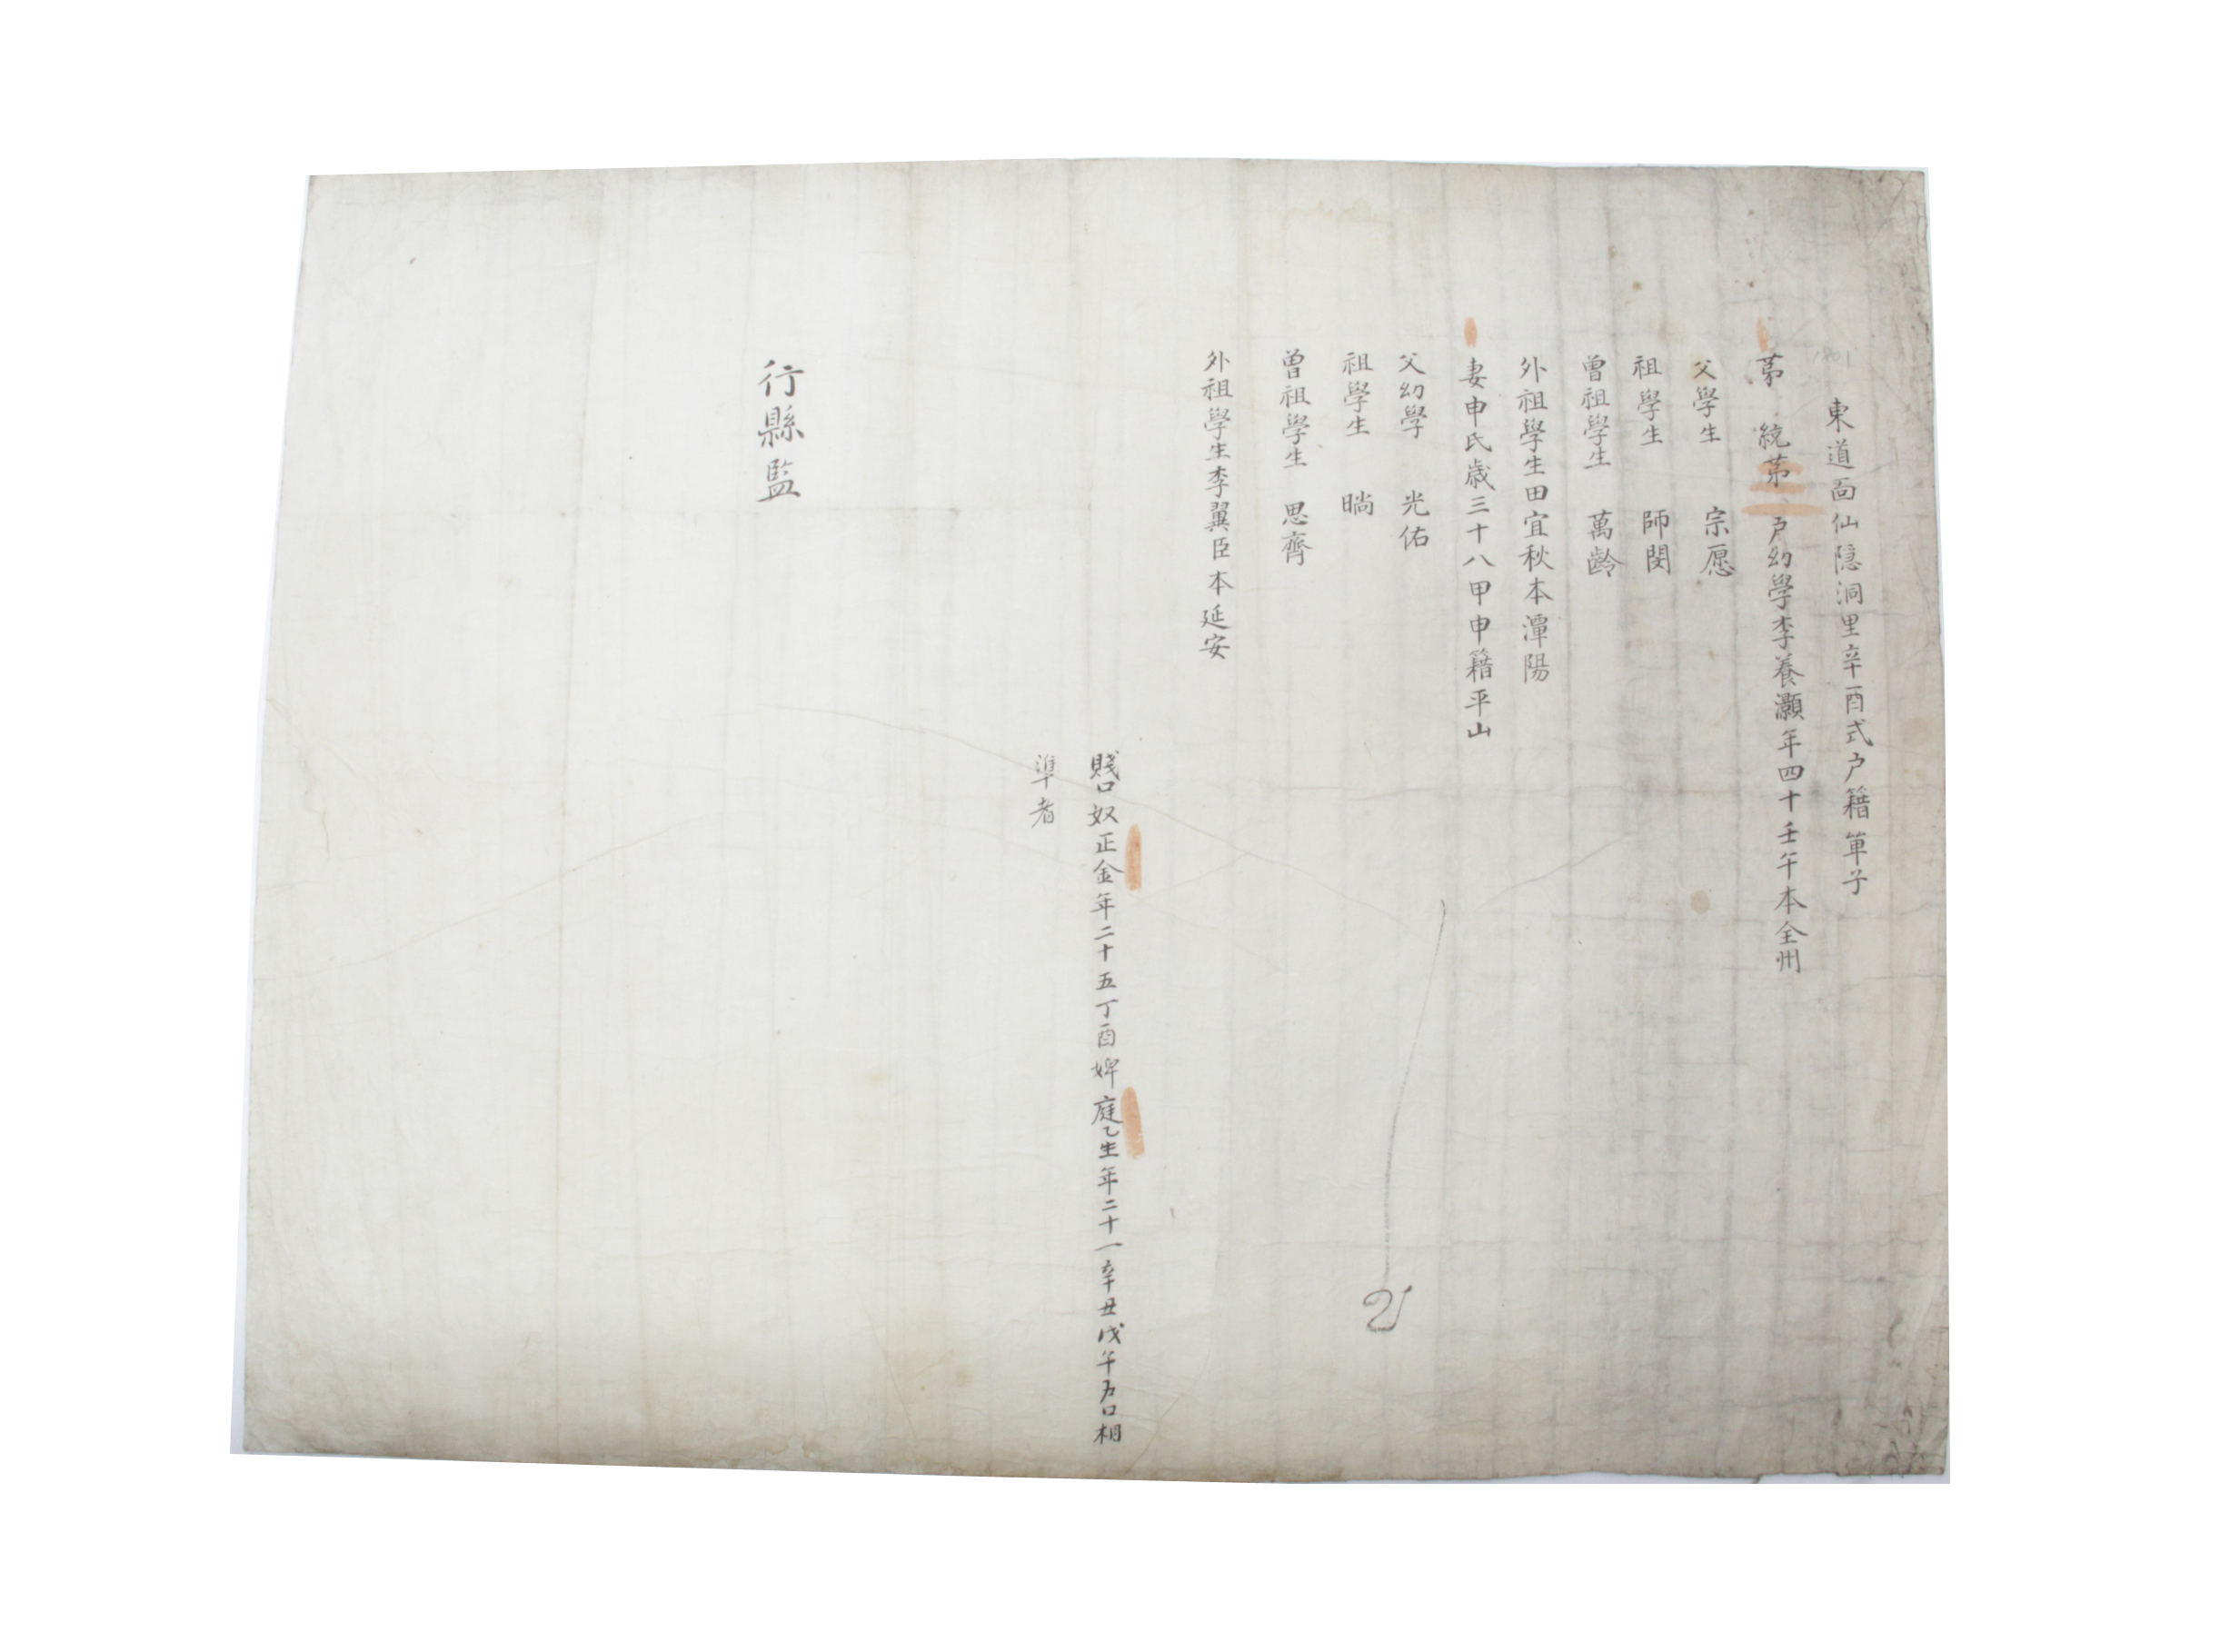 東道面仙隱洞里辛酉式戶籍單子
1801
第 統第 戶幼學李養灝年四十壬午本全州
父學生 宗愿
祖學生 師閔
曾祖學生 萬齡
外祖學生田宜秋本潭陽
妻申氏歲三十八甲申籍平山
父幼學 光佑
祖學生 晌
曾祖學生 思齊
外祖學生李翼臣本延安
賤口奴正金年二十五丁酉婢庭乙生年二十一辛丑戊午戶口相
準者
行縣監